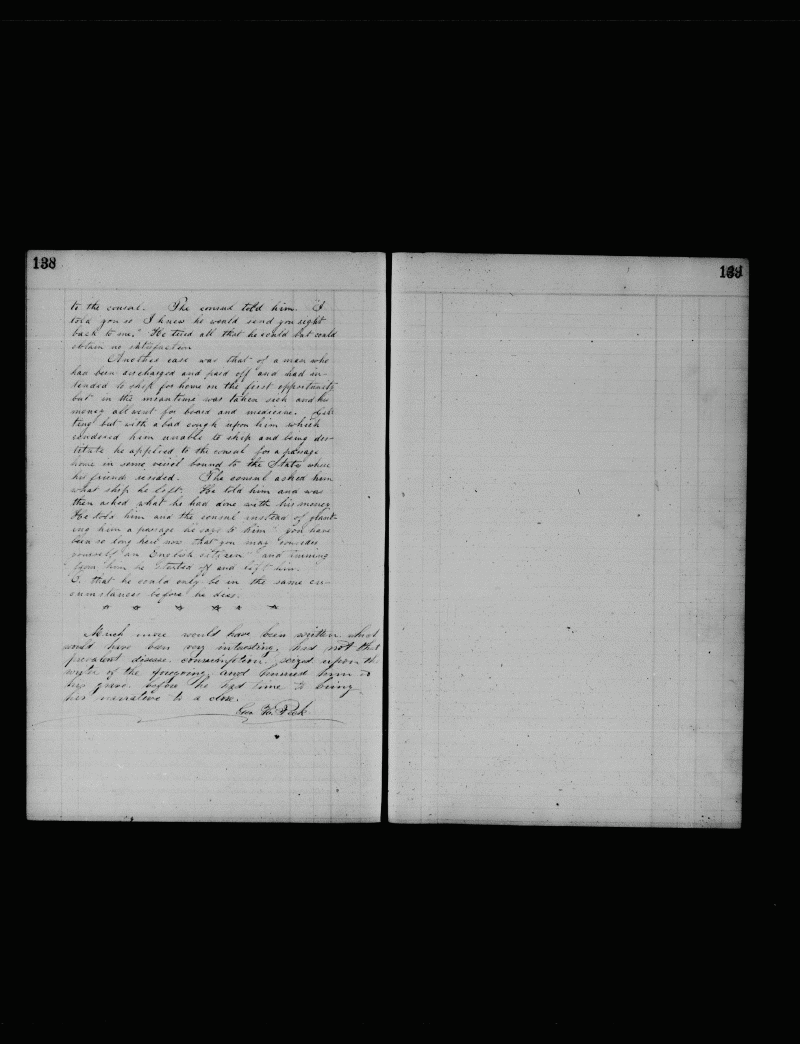 138
to the consul. The consul told him. "I
told you so I knew he would send you right
back to me." He tried all that he could but could
obtain no satisfaction
Another case was that of a man who
had been discharged and paid off and had in-
tended to ship for home on the first opportunity
but in the meantime was taken sick and his
money all went for board and medicine.
ting but with a bad cough upon him which
rendered him unable to ship and being des-
titute he applied to the consul for a passage
home in some vessel bound to the State where
his friends resided. The consul asked him
what ship he left. He told him and was
then asked what he had done with his money
He told him and the consul instead of grant-
ing him a passage he says to him "You have
been so long here now that you may consider
yourself an English citizen" and turning
from him he started off and left him.
O. that he could only be in the same cir-
cumstances before he dies.
☆ ☆ ☆ ☆ ☆ ☆
Much more would have been written which
would have been very interesting, had not that
prevalent disease consumption, seized upon the
writer of the foregoing, and hurried him to
his grave before he had time to bring
his narrative to a close.
Geo. H. Peck
139